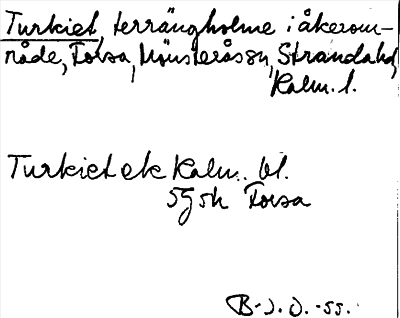 Turkiet, terrängholme i åkerom-
råde, Forsa, Mönsterås sn, Stranda hd,
Kalm. l.
Turkiet ek Kalm. bl.
5g5h Forsa
B-J.O. -55.